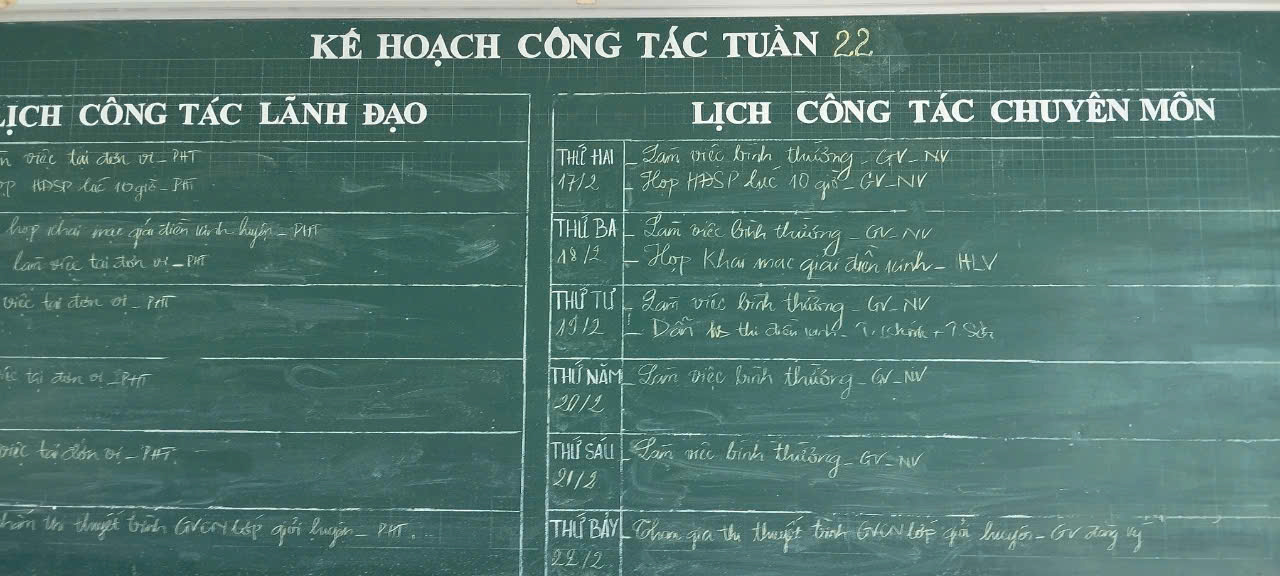 KẾ HOẠCH CÔNG TÁC TUẦN 22
LỊCH CÔNG TÁC LÃNH ĐẠO
việc tại đơn vị - PHT
HĐSP lúc 10 giờ - PHT
họp khai mạc giải điền kinh huyện - PHT
làm việc tại đơn vị - PHT
việc tại đơn vị - PHT
tại đơn vị - PHT
việc tại đơn vị - PHT.
thi thuyết trình GVCN lớp giỏi huyện - PHT.
LỊCH CÔNG TÁC CHUYÊN MÔN
THỨ HAI - Làm việc bình thường - GV - NV
17/2 - Họp HĐSP lúc 10 giờ - GV - NV
THỨ BA - Làm việc bình thường - GV - NV
18/2 - Họp Khai mạc giải điền kinh - HLV
THỨ TƯ - Làm việc bình thường - GV - NV
19/2 - Dẫn thi điền kinh -
THỨ NĂM - Làm việc bình thường - GV - NV
20/2
THỨ SÁU - Làm việc bình thường - GV - NV
21/2
THỨ BẢY - Tham gia thi thuyết trình GVCN lớp giỏi huyện - GV đăng ký
22/2